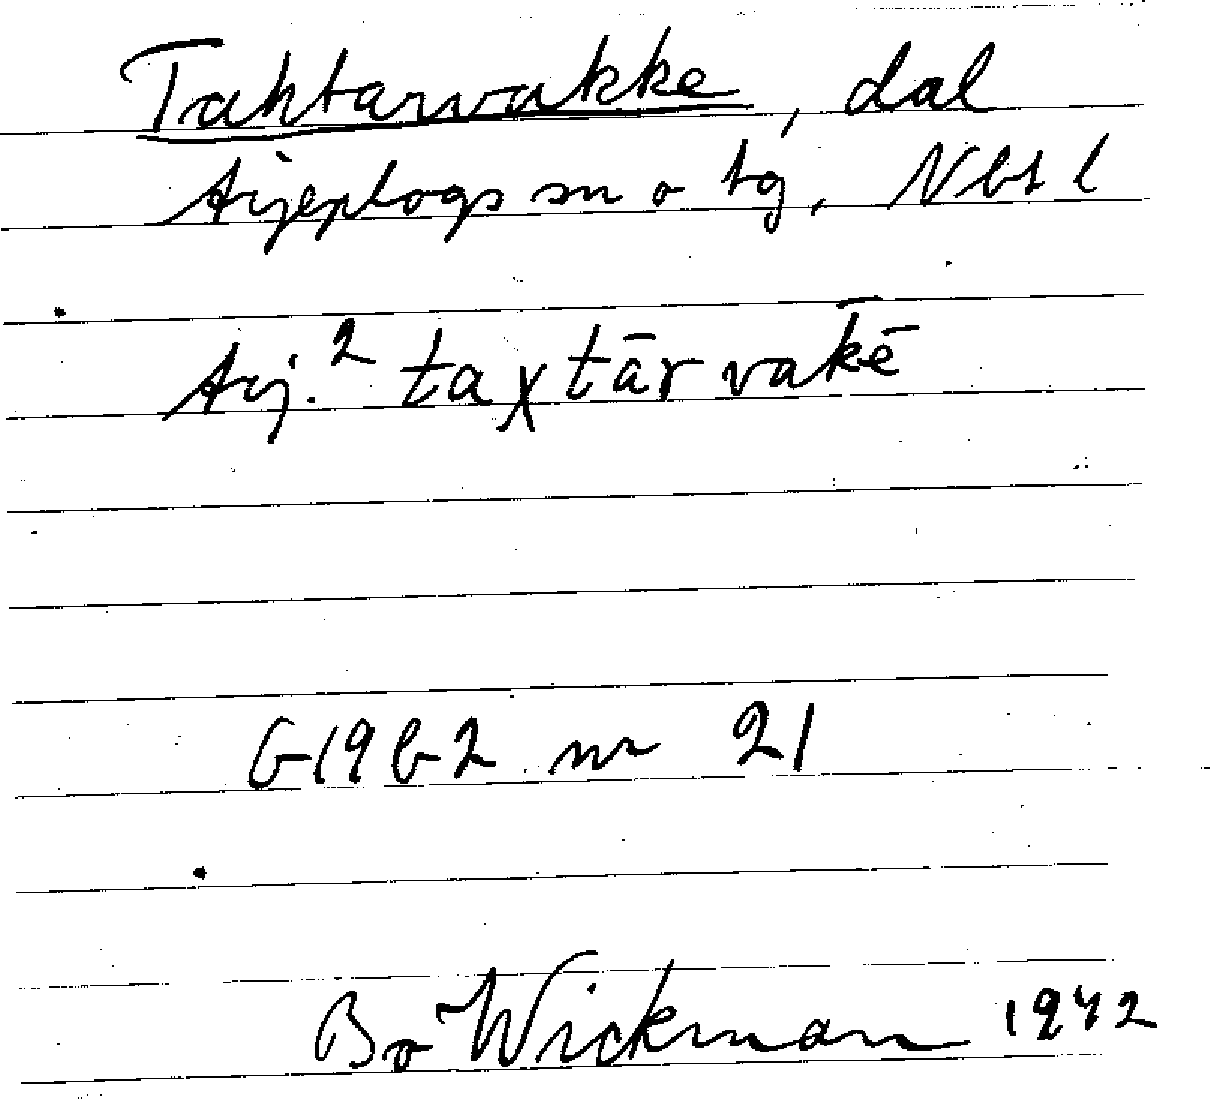 Tahtarvakke, dal
Arjeplogs sn o tg, Nbt l
Arj.² taχtār vak̄ē
G19b2 nr 21
Bo Wickman 1942